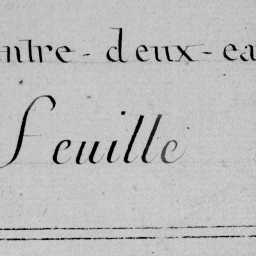 ntre-deux-ea
feuille